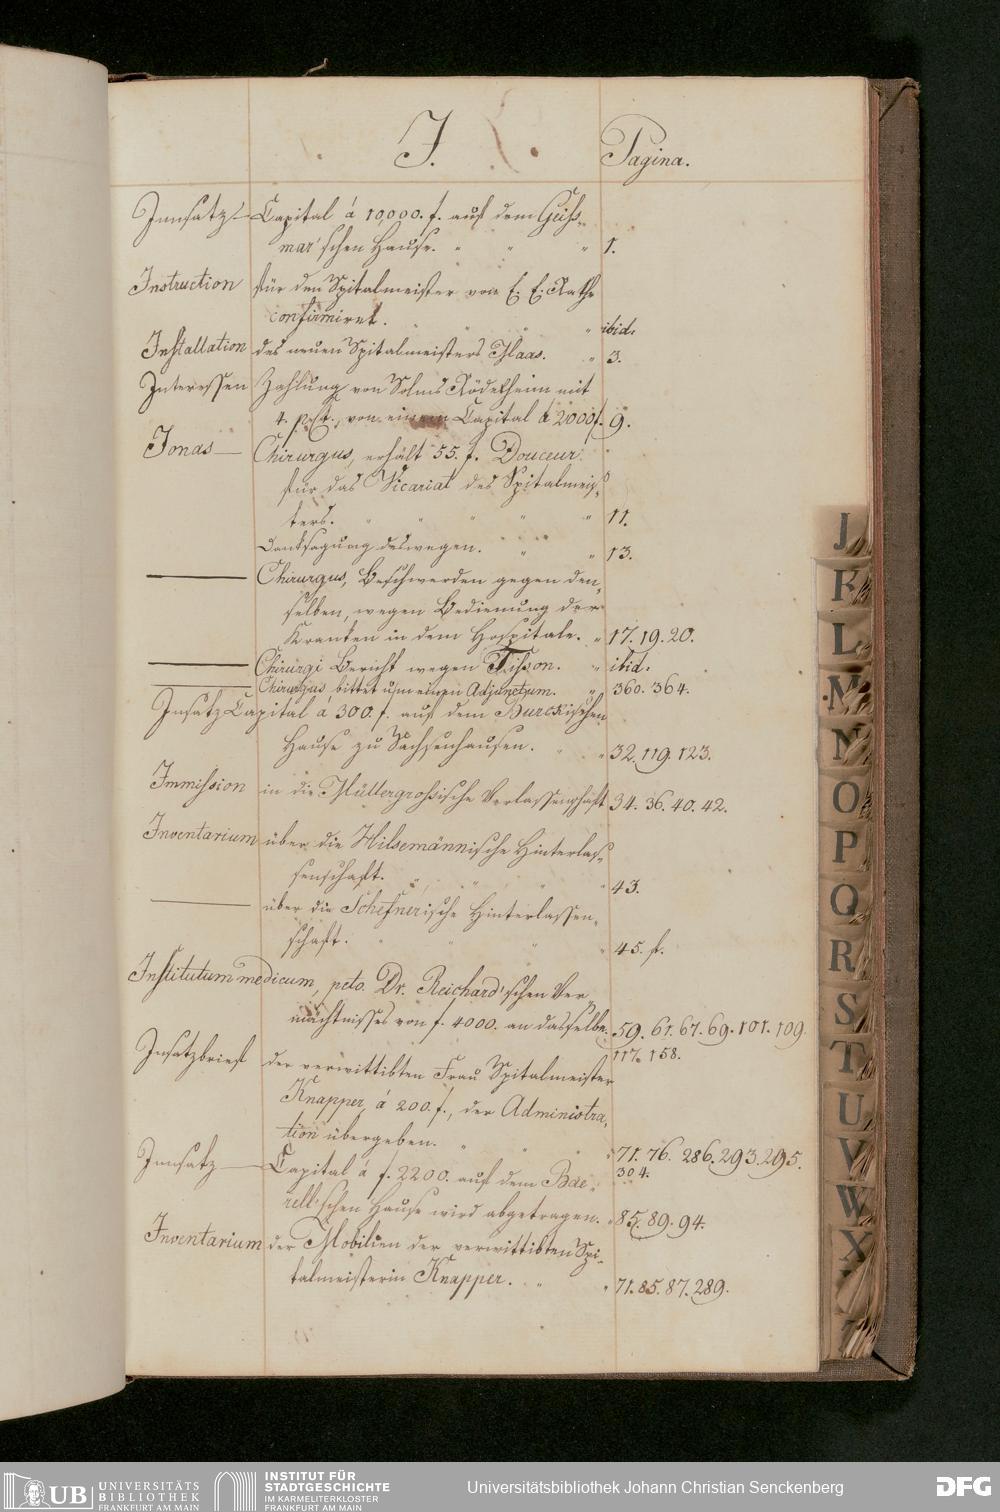 J.
Pagina.
Innsatz- Capital á 10,000. f. auf dem Geiß-
mar'schen Hause. " " " 1.
Instruction für den Spitalmeister von E. E. Rathe
confirmiret. " ibid.
Installation des neuen Spitalmeisters Haas. " 3.
Interessen Zahlung von Solms Rödelheim mit
4. pCt., von einem Capital à 2000 f. 9.
Jonas — Chirurgus, erhält 55. f. Douceur
für das Vicariat des Spitalmeis-
ters. " " " " " 11.
Danksagung deswegen. " " 13.
— Chirurgus, Beschwerden gegen den-
selben, wegen Bedienung der
Kranken in dem Hospitale. " 17. 19. 20.
— Chirurgi Bericht wegen Tißon. " ibid.
— Chirurgus bittet um einen Adjunctum. " 360. 364.
Insatz Capital á 300. f. auf dem Burckischen
Hause zu Sachsenhausen. " " 32. 119. 123.
Immission in die Müllergroßische Verlassenschaft 34. 36. 40. 42.
Inventarium über die Hilsemännische Hinterlas-
senschaft. " " " " 43.
— über die Schefnerische Hinterlassen-
schaft. " " " " 45. f.
Institutum medicum, pcto. Dr. Reichard'schen Ver-
mächtnisses von f. 4000. an dasselbe. 59. 61. 67. 69. 101. 109.
117. 158.
Insatzbrief der verwittibten Frau Spitalmeister
Knapper á 200. f., der Administra-
tion übergeben. " " " 71. 76. 286. 293. 295.
304.
Innsatz — Capital á f. 2200. auf dem Bae-
rell'schen Hause wird abgetragen. " 85. 89. 94.
Inventarium der Mobilien der verwittibten Spi-
talmeisterin Knapper. " " 71. 85. 87. 289.
J
K
L
M
N
O
P
Q
R
S
T
U
V
W
X
Z
UB UNIVERSITÄTS
BIBLIOTHEK
FRANKFURT AM MAIN
INSTITUT FÜR
STADTGESCHICHTE
IM KARMELITERKLOSTER
FRANKFURT AM MAIN
Universitätsbibliothek Johann Christian Senckenberg
DFG